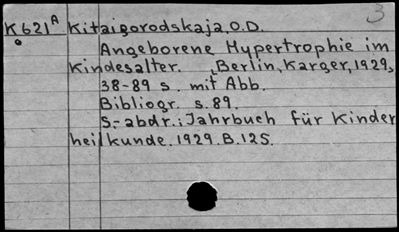 3
K621A Kitaigorodskaja, O.D.
Angeborene Hypertrophie im
Kindesalter. Berlin, Karger, 1929,
38-89 s. mit Abb.
Bibliogr. s. 89.
S.-abdr.: Jahrbuch für Kinder
heilkunde. 1929. B. 125.